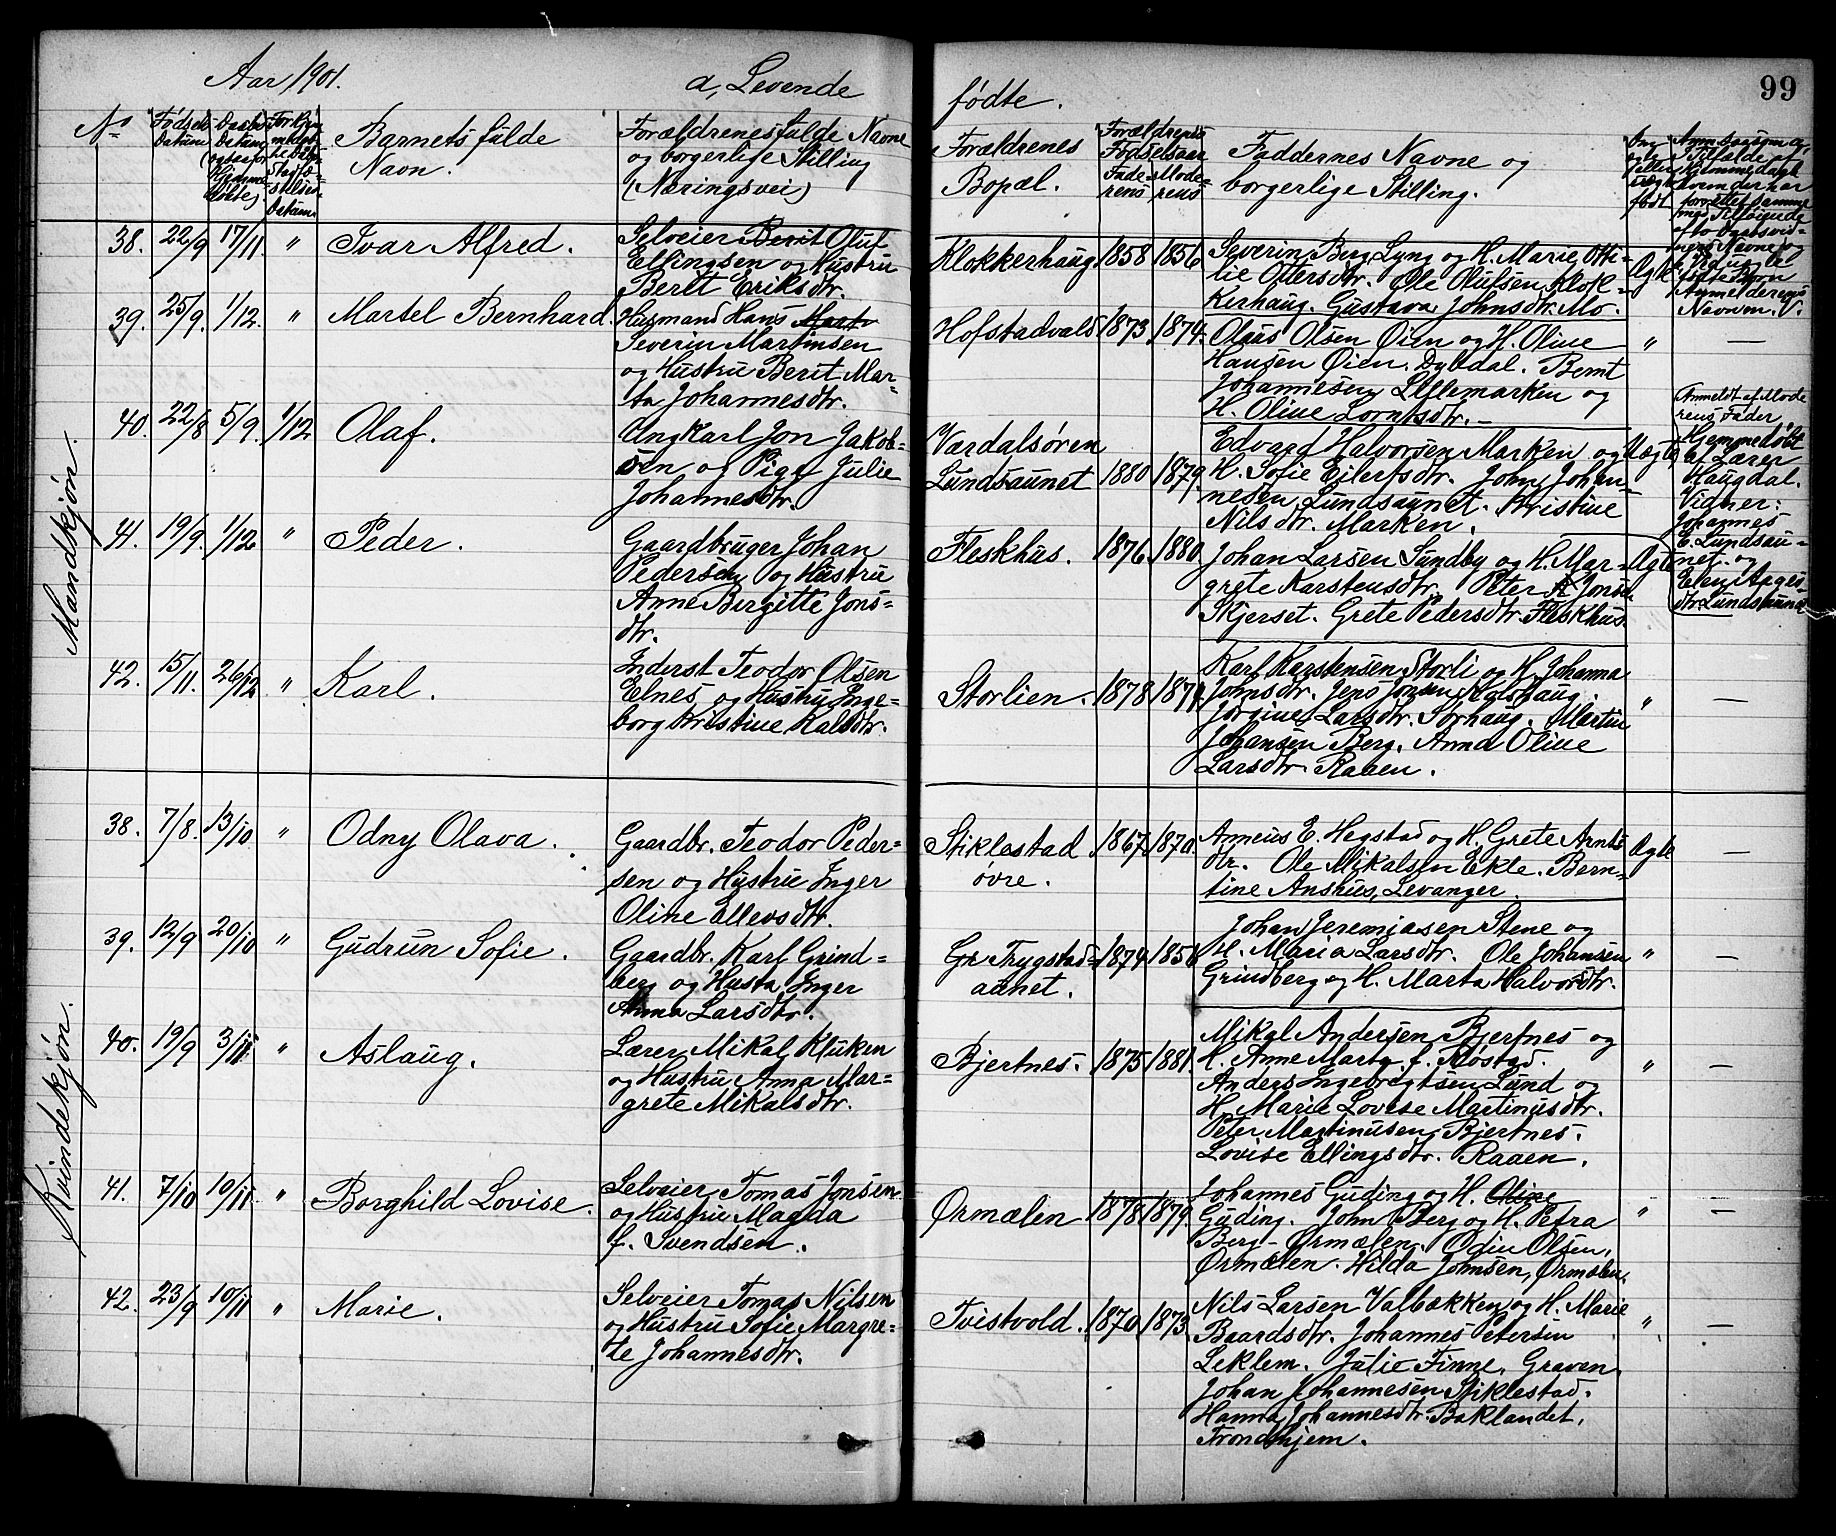 Aar 1901.
a, Levende
fødte.
99
No
Fødsels
Datum
Daabs
Datum
Barnets fulde
Navn.
Forældrenes fulde Navne
og borgerlige Stilling
(Næringsvei)
Forældrenes
Bopæl.
Forældrenes
Fødselsaar
Fade-
rens
Mode-
rens
Faddernes Navne og
borgerlige Stilling.
Mandkjøn.
38. 22/9 17/11 " Ivar Alfred.
Selveier Berit Oluf
Ellingsen og Hustru
Berit Eriksdtr.
Klokkerhaug 1858 1856
Severin Berg Lyng og H. Marie Otti-
lie Ottersdtr. Ole Olufsen Klok-
kerhaug. Gustava Johnsdtr. Mo.
Ægte
39. 25/9. 1/12. " Martel Bernhard.
Husmand Hans Mart
Severin Martinsen
og Hustru Berit Mar-
ta Johannesdtr.
Hofstadvald 1873 1874.
Olaus Olsen Øien og H. Oline
Hansen Øien. Dybdal. Bernt
Johannesen Lillemarken og
H. Oline Lorntsdtr. -
" -
40. 22/8 5/9. 1/12 Olaf.
Ungkarl Jon Jakob-
sen og Pige Julie
Johannesdtr.
Værdalsøren
Lundsaunet 1880 1879.
Edvard Halvorsen Marken og
H. Sofie Eilertsdtr. John Johan-
nesen Lundsaunet. Kristine
Nilsdtr. Marken.
Uægte
Anmeldt af Mode
rens Fader
Hjemmedøbt
af Lærer
Haugdal.
Vidner:
Johannes
E. Lundsau-
net og
Elen Aages-
dtr. Lundsaunet
41. 19/9. 1/12 " Peder.
Gaardbruger Johan
Pedersen og Hustru
Anne Birgitte Jons-
dtr.
Fleskhus. 1876. 1880.
Johan Larsen Sundby og H. Mar-
grete Karstensdtr. Peter A Jons.
Skjerset. Grete Pedersdtr. Fleskhus
Ægte
42. 15/11. 26/12 " Karl.
Inderst Teodor Olsen
Elnes og Hustru Inge-
borg Kristine Kalsdtr.
Storlien. 1878 1871.
Karl Karstensen Storli og H. Johanna
Johnsdtr. Jens Jonsen
Jørgine Larsdtr. Sorhaug. Martin
Johansen Berg. Anna Oline
Larsdtr. Raaen.
" -
Kvindekjøn.
38. 7/8. 13/10 " Odny Olava.
Gaardbr. Teodor Peder-
sen og Hustru Inger
Oline Ellevsdtr.
Stiklestad
øvre. 1867. 1870.
Anneus E. Hegstad og H. Grete Arnts
dtr. Ole Mikalsen Ekle. Bern-
tine Anshus, Levanger.
Ægte -
39. 12/9 20/10 " Gudrun Sofie.
Gaardbr. Karl Grind-
berg og Husta Inger
Anna Larsdtr.
Gr Trygstad-
aunet. 1874. 1858
Johan Jeremiasen Stene og
H. Maria Larsdtr. Ole Johansen
Grindberg og H. Marta Halvorsdtr.
" -
40. 19/9 3/11. " Aslaug.
Lærer Mikal Kluken
og Hustru Anna Mar-
grete Mikalsdtr.
Bjertnes. 1875 1881.
Mikal Andersen Bjertnes og
H. Anne Marta f. Røstad.
Anders Ingebrigtsen Lund og
H. Marie Lovise Martinusdtr.
Peter Martinusen Bjertnes.
Lovise Ellingsdtr. Raaen.
" -
41. 7/10 10/11. " Borghild Lovise.
Selveier Tomas Jonsen
og Hustru Magda
f. Svendsen.
Ørmælen 1878 1879.
Johannes Guding og H. Oline
Guding. John Berg og H. Petra
Berg - Ørmælen. Odin Olsen,
Ørmælen. Hilda Johnsen, Ørmælen.
" -
42. 23/9 10/11 " Marie.
Selveier Tomas Nilsen
og Hustru Sofie Margre-
te Johannesdtr.
Tvistvold. 1870 1873
Nils Larsen Valbækken og H. Marie
Baardsdtr. Johannes Petersen
Leklem. Julie Finne, Graven,
Johan Johannesen Stiklestad.
Hanna Johannesdtr. Baklandet,
Trondhjem.
" -